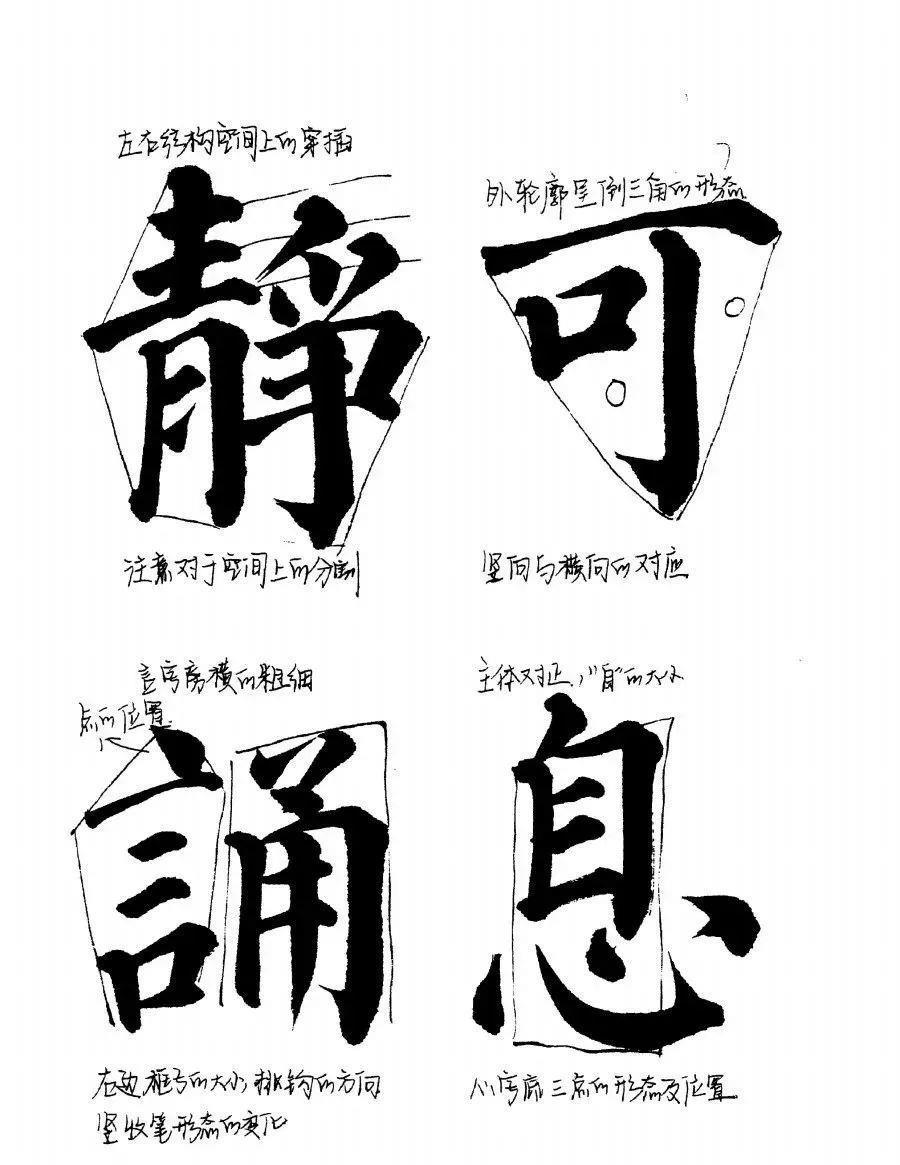 左右结构空间上的穿插
靜
注意对于空间上的分割
外轮廓呈倒三角的形态
可
竖向与横向的对应
言字旁横的粗细
点的位置
誦
右边框的大小,挑钩的方向
竖收笔形态的变化
主体对正,"自"的大小
息
心字底三点的形态及位置